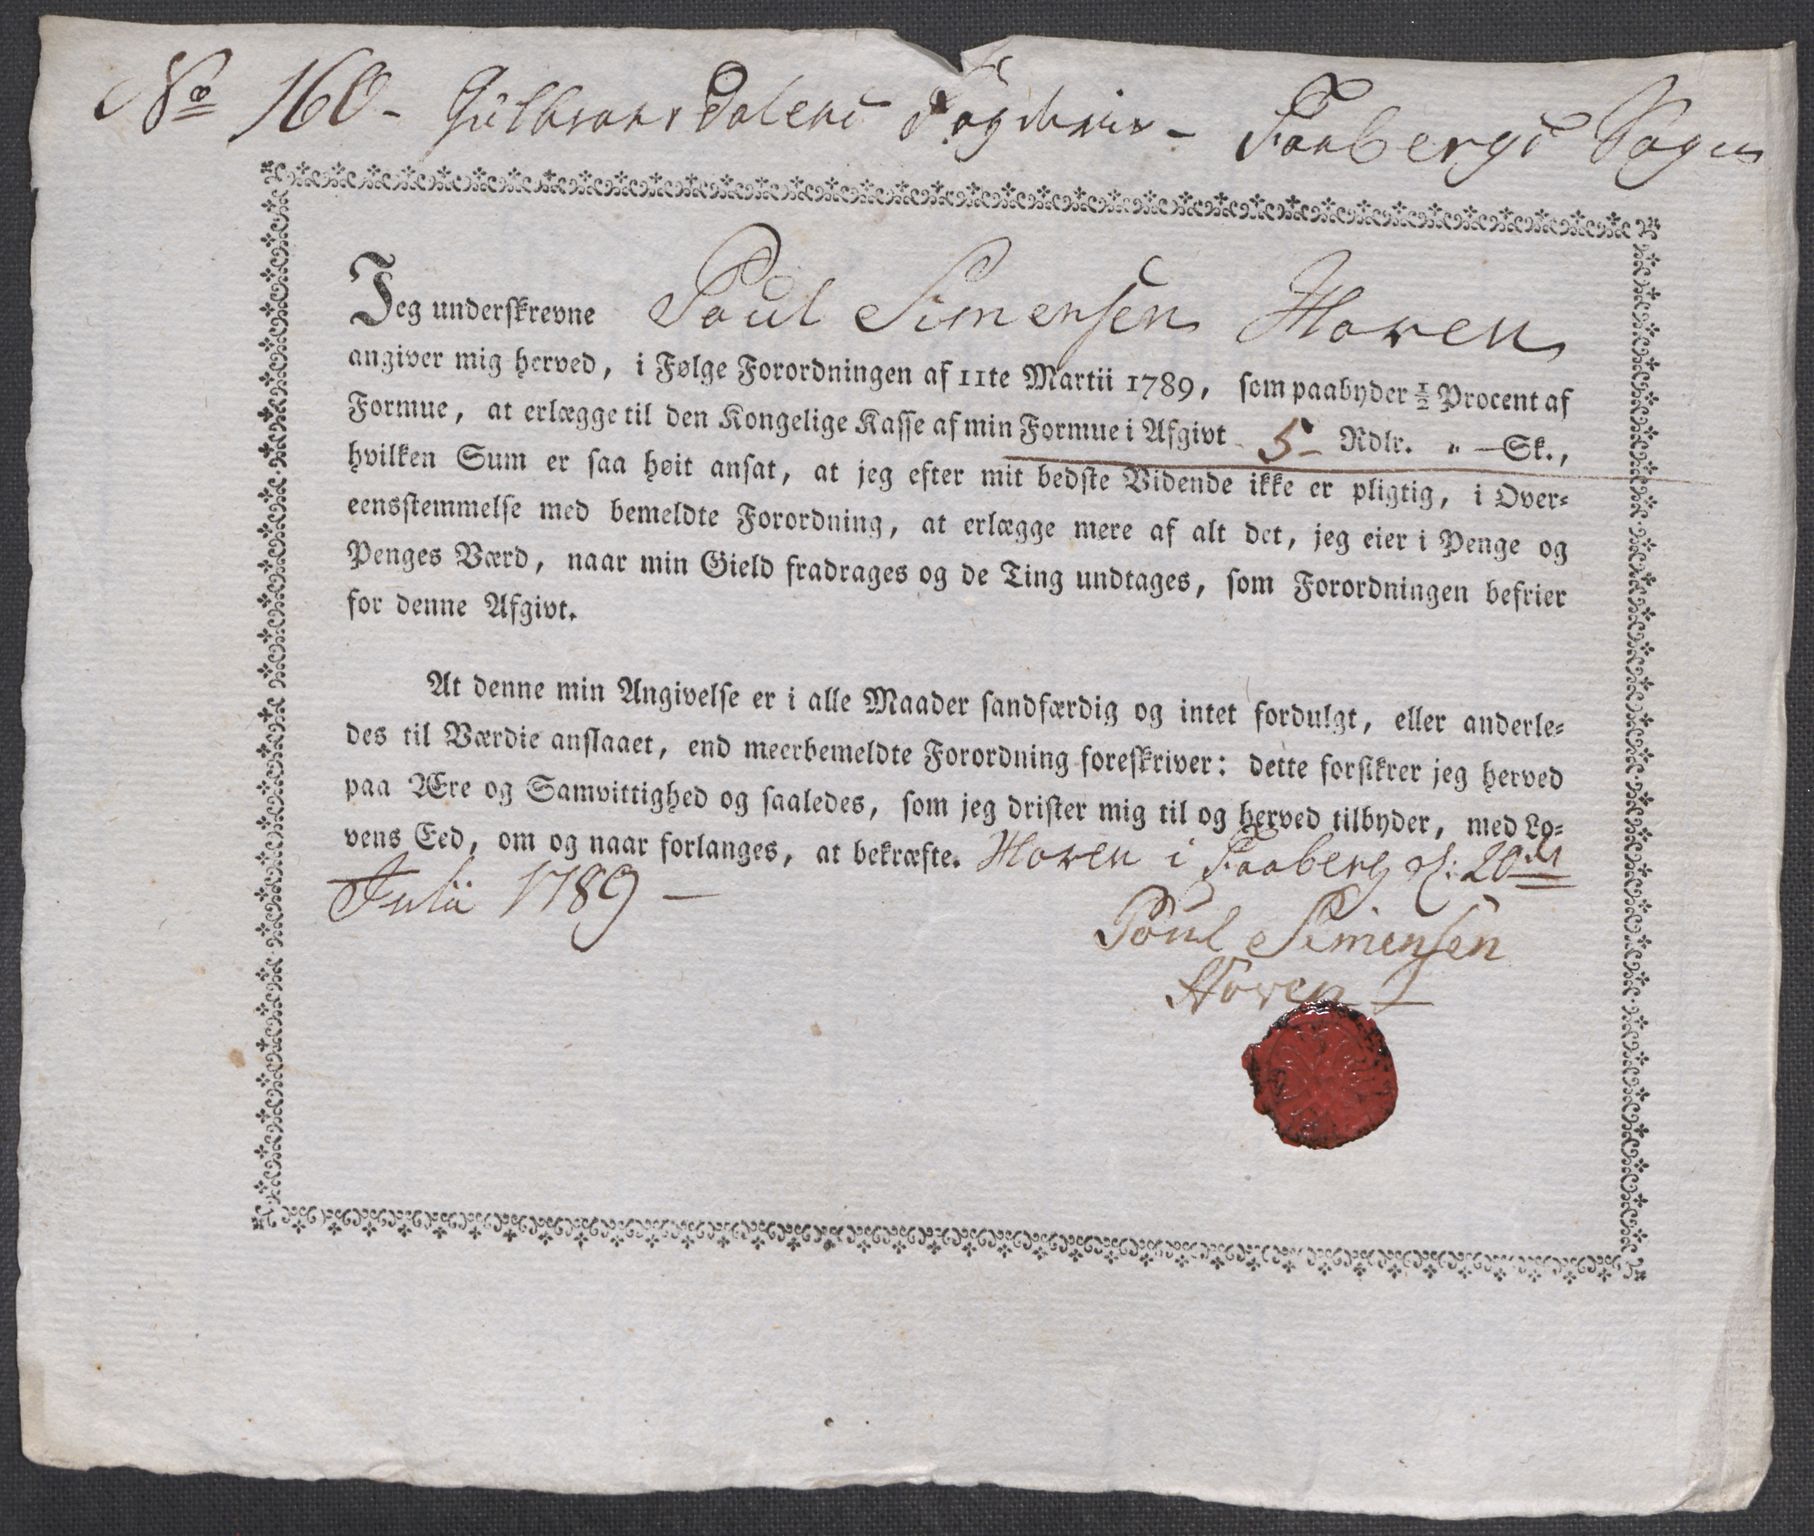 No 160 - Gulbransdalens Fogderie - Faabergs Sogn
Jeg underskrevne Poul Simensen Hoven
angiver mig herved, i Følge Forordningen af 11te Martii 1789, som paabyder ½ Procent af
Formue, at erlægge til den Kongelige Kasse af min Formue i Afgivt 5 - Rdlr. " — Sk.,
hvilken Sum er saa høit ansat, at jeg efter mit bedste Vidende ikke er pligtig, i Over-
eensstemmelse med bemeldte Forordning, at erlægge mere af alt det, jeg eier i Penge og
Penges Værd, naar min Gield fradrages og de Ting undtages, som Forordningen befrier
for denne Afgivt.
At denne min Angivelse er i alle Maader sandfærdig og intet fordulgt, eller anderle-
des til Værdie anslaaet, end meerbemeldte Forordning foreskriver: dette forsikrer jeg herved
paa Ære og Samvittighed og saaledes, som jeg drister mig til og herved tilbyder, med Lo-
vens Eed, om og naar forlanges, at bekræfte. Hoven i Faaberg d: 20de
Julii 1789 -
Poul Simensen
Hoven